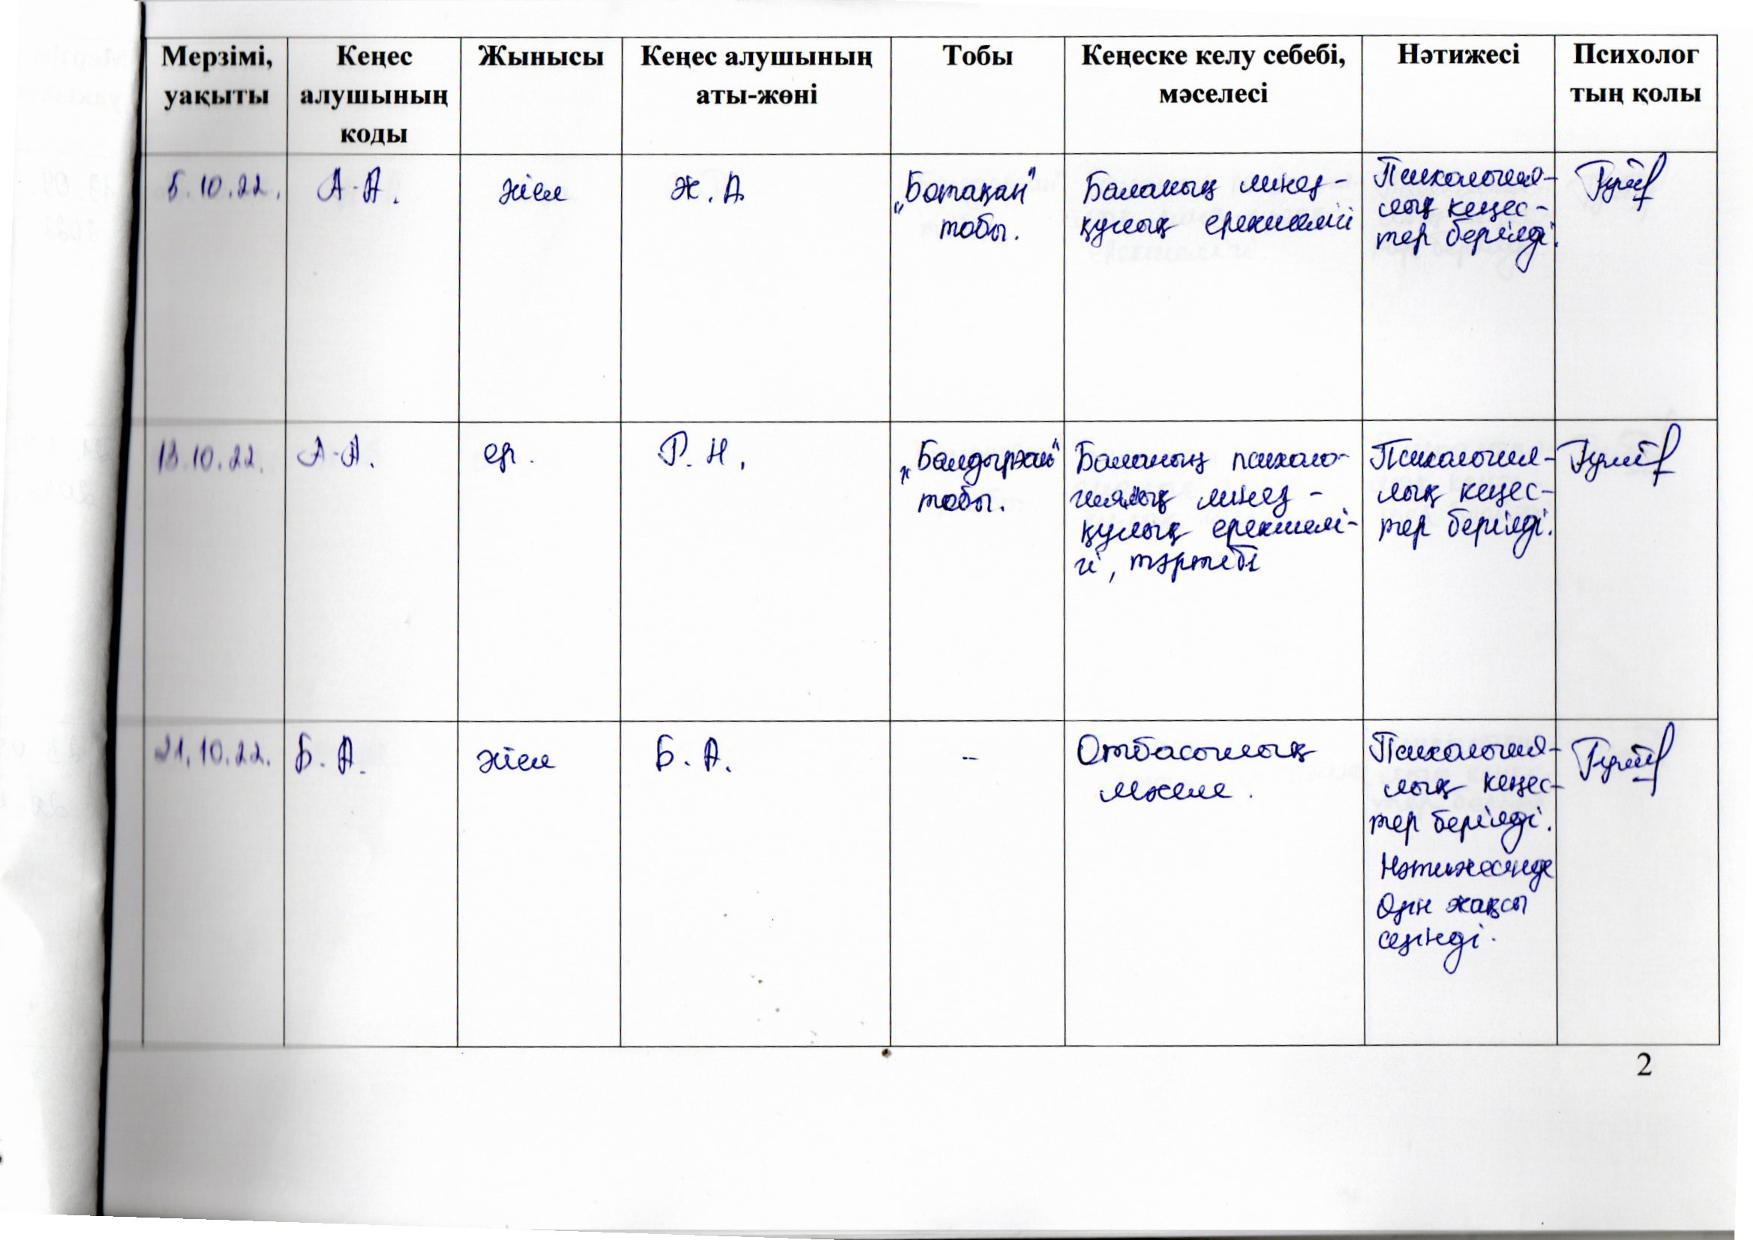 Мерзімі,
уақыты
Кеңес
алушының
коды
Жынысы
Кеңес алушының
аты-жөні
Тобы
Кеңеске келу себебі,
мәселесі
Нәтижесі
Психолог
тың қолы
5.10.22.
А-А.
әйел
Ж. А
„Ботақан"
тобы.
Баланың мінез-
құлық ерекшелігі
Психология-
лық кеңес-
тер берілді.
13.10.22.
А-А.
ер.
Р. Н.
„Балдырған"
тобы.
Баланың психоло-
гиялық мінез-
құлық ерекшелі-
гі, тәртебі
Психология-
лық кеңес-
тер берілді.
21.10.22.
Б. А.
әйел
Б. А.
--
Отбасылық
мәселе.
Психология-
лық кеңес-
тер берілді.
Нәтижесінде
Өзін жақсы
сезінді.
2